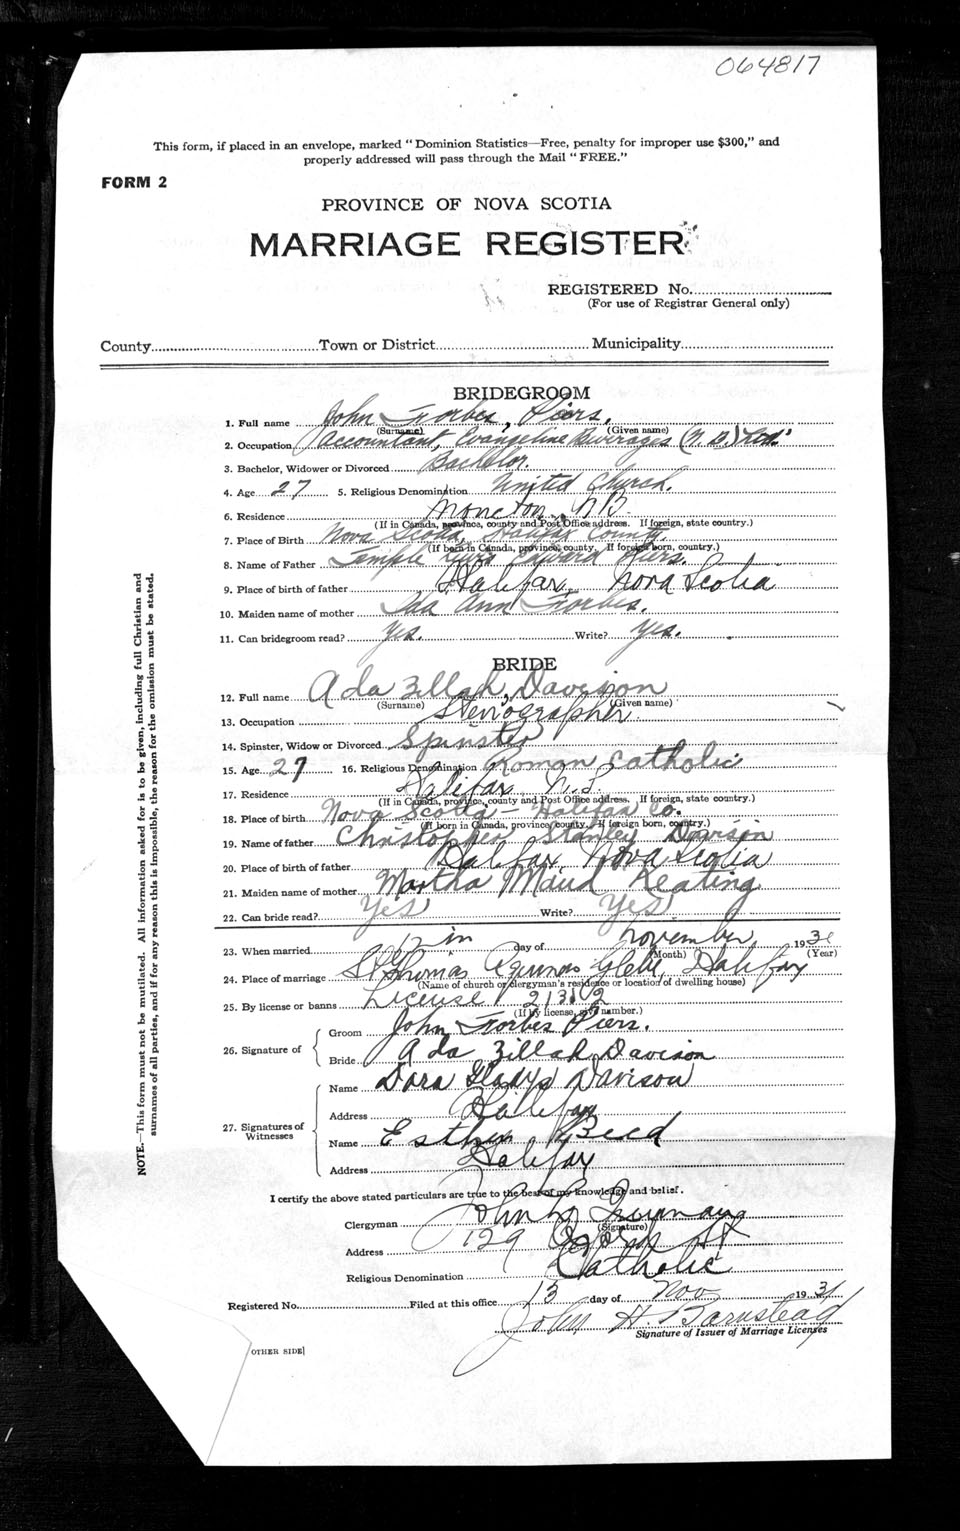 064817
This form, if placed in an envelope, marked "Dominion Statistics—Free, penalty for improper use $300," and
properly addressed will pass through the Mail "FREE."
FORM 2
PROVINCE OF NOVA SCOTIA
MARRIAGE REGISTER
REGISTERED No.
(For use of Registrar General only)
County Town or District Municipality
BRIDEGROOM
1. Full name John Forbes, Piers.
(Surname) (Given name)
2. Occupation Accountant, Evangeline Beverages (N.B.) Ltd.
3. Bachelor, Widower or Divorced Bachelor.
4. Age 27 5. Religious Denomination United Church.
6. Residence Moncton, N.B.
(If in Canada, province, county and Post Office address. If foreign, state country.)
7. Place of Birth Nova Scotia, Halifax County.
(If born in Canada, province, county. If foreign born, country.)
8. Name of Father Temple Edward Piers.
9. Place of birth of father Halifax, Nova Scotia
10. Maiden name of mother Ida Ann Forbes.
11. Can bridegroom read? Yes. Write? Yes.
BRIDE
12. Full name Ada Zillah, Davison
(Surname) (Given name)
13. Occupation Stenographer
14. Spinster, Widow or Divorced Spinster
15. Age 27 16. Religious Denomination Roman Catholic
17. Residence Halifax N.S.
(If in Canada, province, county and Post Office address. If foreign, state country.)
18. Place of birth Nova Scotia - Halifax Co.
(If born in Canada, province, county. If foreign born, country.)
19. Name of father Christopher Stanley Davison
20. Place of birth of father Halifax, Nova Scotia
21. Maiden name of mother Martha Maud Keating
22. Can bride read? Yes Write? Yes
23. When married 12 day of November 1931
(Month) (Year)
24. Place of marriage St Thomas Aquinas Glebe, Halifax
(Name of church or clergyman's residence or location of dwelling house)
25. By license or banns License 21302
(If by license, give number.)
26. Signature of
Groom John Forbes Piers.
Bride Ada Zillah Davison
27. Signatures of Witnesses
Name Dora Gladys Davison
Address Halifax
Name Esther
Address Halifax
I certify the above stated particulars are true to the best of my knowledge and belief.
Clergyman John
(Signature)
Address 129 St
Religious Denomination Catholic
Registered No. Filed at this office 13 day of Nov 1931
John H. Barnstead
Signature of Issuer of Marriage Licenses
OTHER SIDE]
NOTE.—This form must not be mutilated. All information asked for is to be given, including full Christian and
surnames of all parties, and if for any reason this is impossible, the reason for the omission must be stated.